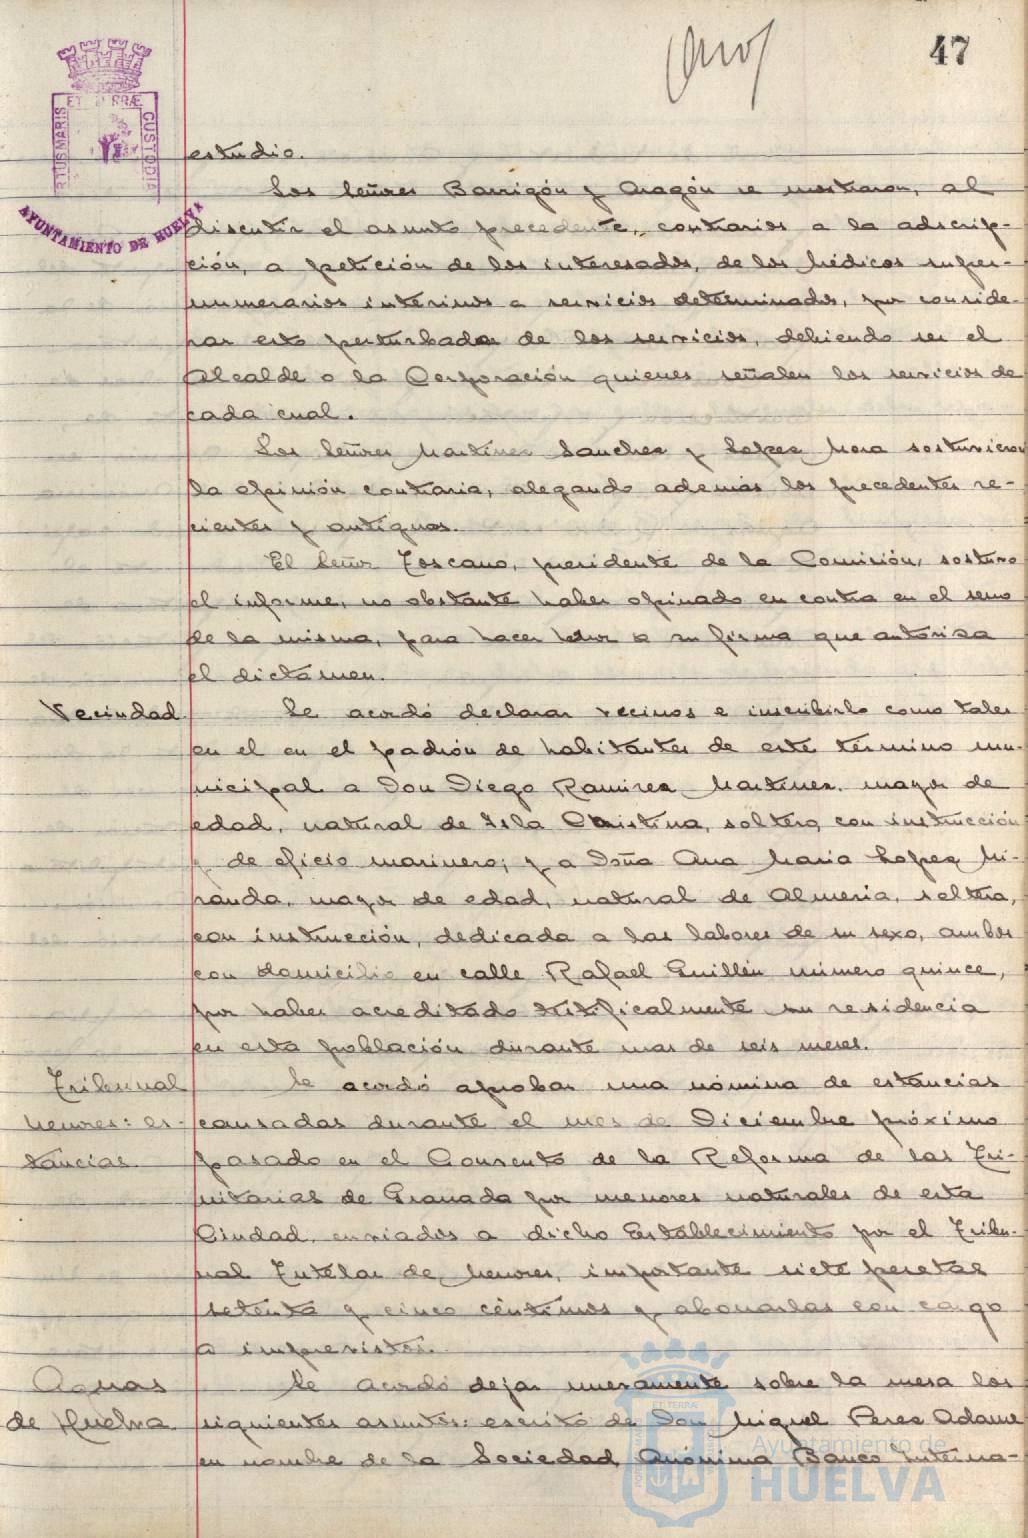 47
ET TERRÆ
PORTUS MARIS
CUSTODIA
AYUNTAMIENTO DE HUELVA
estudio.
Los Señores Barrigón y Aragón se mostraron, al
discutir el asunto precedente, contrarios a la adscrip-
ción, a petición de los interesados, de los Médicos super-
numerarios interinos a servicios determinados, por conside-
rar esto perturbador de los servicios, debiendo ser el
Alcalde o la Corporación quienes señalen los servicios de
cada cual.
Los Señores Martinez Sanchez y Lopez Mora sostuvieron
la opinión contraria, alegando además los precedentes re-
cientes y antiguos.
El Señor Toscano, presidente de la Comisión, sostuvo
el informe, no obstante haber opinado en contra en el seno
de la misma, para hacer honor a su firma que autoriza
el dictámen.
Vecindad
Se acordó declarar vecinos e inscribirlo como tales
en el en el padrón de habitantes de este término mu-
nicipal a Don Diego Ramirez Martinez, mayor de
edad, natural de Isla Cristina, soltero, con instrucción
y de oficio marinero; y a Doña Ana Maria Lopez Mi-
randa, mayor de edad, natural de Almeria, soltera,
con instrucción, dedicada a las labores de su sexo, ambos
con domicilio en calle Rafael Guillén número quince,
por haber acreditado testificalmente su residencia
en esta población durante mas de seis meses.
Tribunal
Menores: es-
tancias.
Se acordó aprobar una nómina de estancias
causadas durante el mes de Diciembre próximo
pasado en el Convento de la Reforma de las Tri-
nitarias de Granada por menores naturales de esta
Ciudad, enviados a dicho Establecimiento por el Tribu-
nal Tutelar de Menores, importante siete pesetas
setenta y cinco céntimos y abonarlas con cargo
a imprevistos.
Aguas
de Huelva
Se acordó dejar nuevamente sobre la mesa los
siguientes asuntos: escrito de Don Miguel Perez Adame
en nombre de la Sociedad Anónima Banco Interna-
Ayuntamiento de
HUELVA